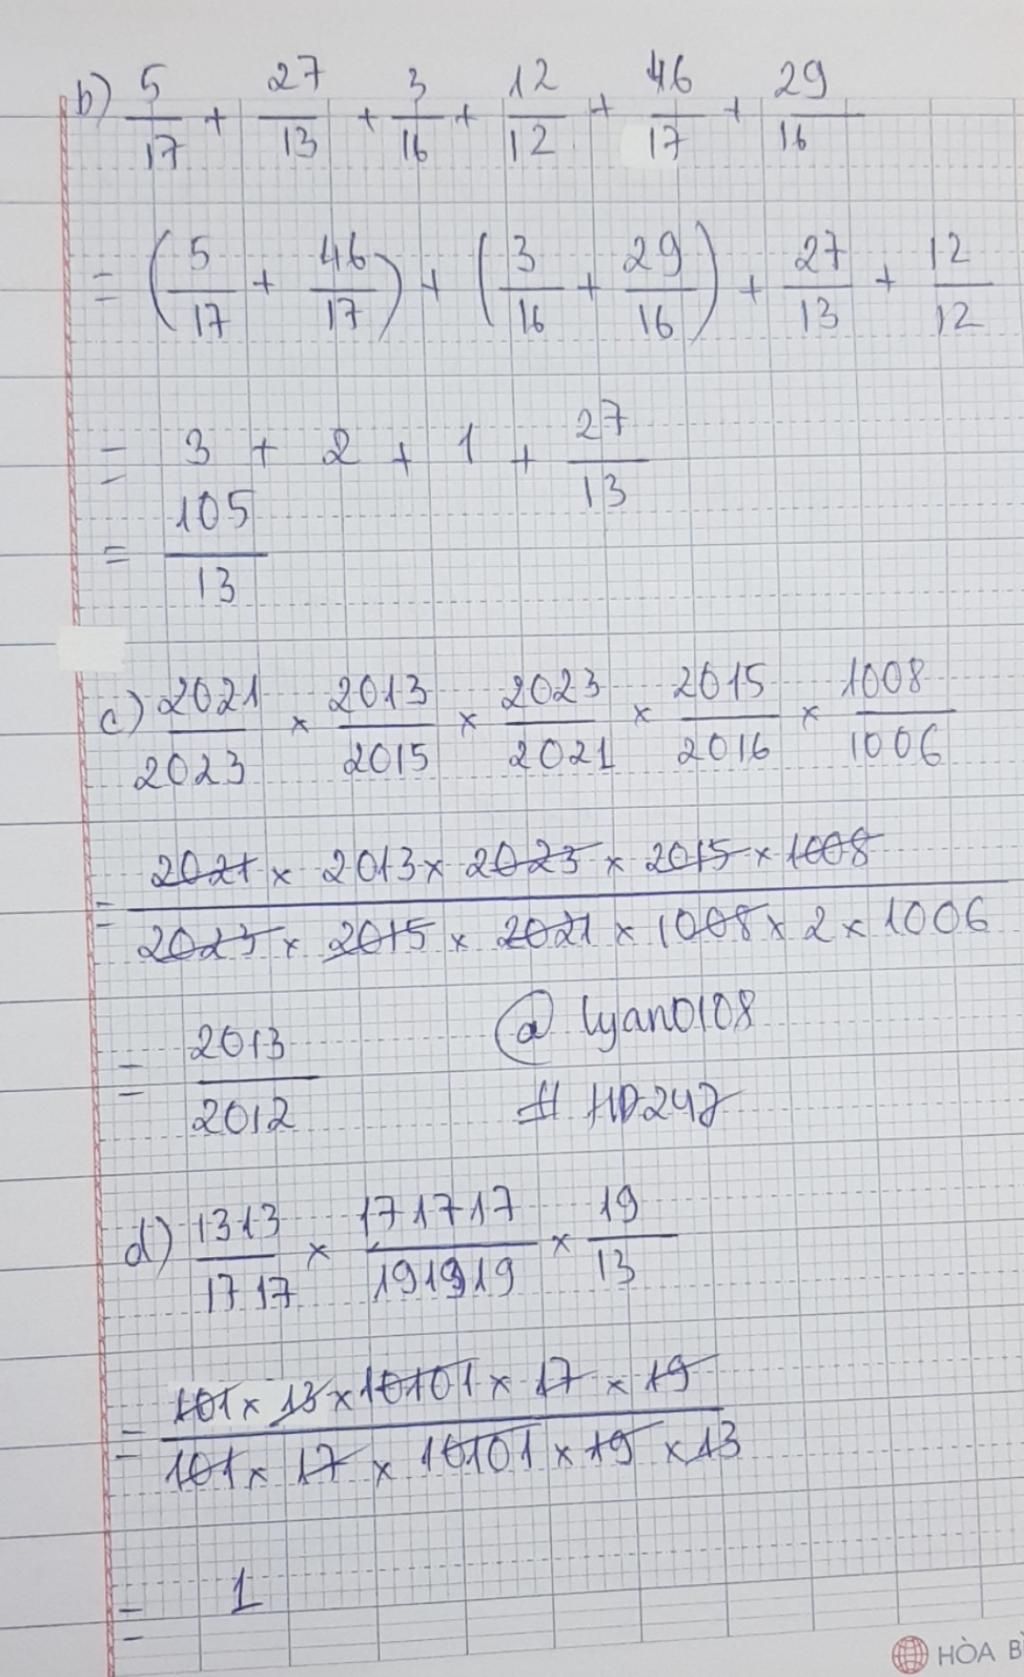 b) 5/17 + 27/13 + 3/16 + 12/12 + 46/17 + 29/16
= (5/17 + 46/17) + (3/16 + 29/16) + 27/13 + 12/12
= 3 + 2 + 1 + 27/13
= 105/13
c) 2021/2023 × 2013/2015 × 2023/2021 × 2015/2016 × 1008/1006
= 2021 × 2013 × 2023 × 2015 × 1008 / 2023 × 2015 × 2021 × 1008 × 2 × 1006
= 2013/2012
@ lyan0108
# HD247
d) 1313/1717 × 171717/191919 × 19/13
= 101 × 13 × 10101 × 17 × 19 / 101 × 17 × 10101 × 19 × 13
= 1
HÒA B